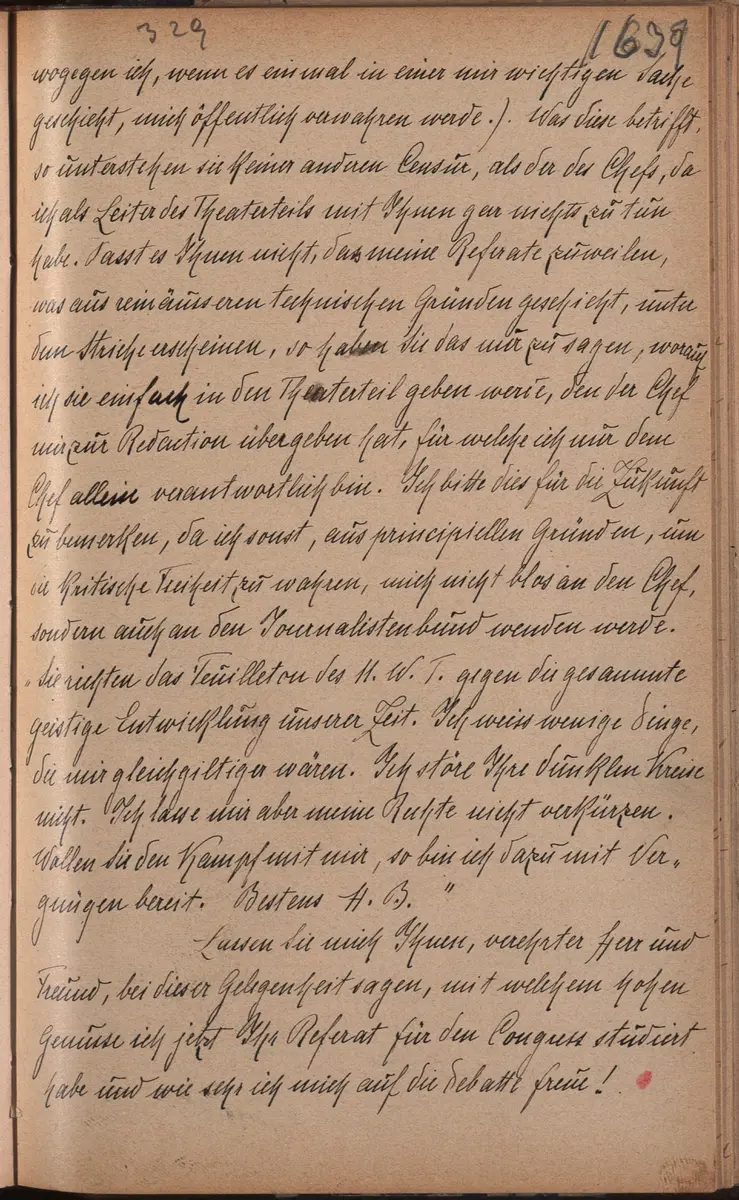 329
1639
wogegen ich, wenn es einmal in einer mir wichtigen Sache
geschieht, mich öffentlich verwahren werde.). Was diese betrifft,
so unterstehen sie keiner anderen Censur, als der des Chefs, da
ich als Leiter des Theaterteils mit Ihnen gar nichts zu tun
habe. Passt es Ihnen nicht, dass meine Referate zuweilen,
was aus rein äusseren technischen Gründen geschieht, unter
dem Striche erscheinen, so haben Sie das nur zu sagen, worauf
ich sie einfach in den Theaterteil geben werde, den der Chef
mir zur Redaction übergeben hat, für welche ich nur dem
Chef allein verantwortlich bin. Ich bitte dies für die Zukunft
zu bemerken, da ich sonst, aus principiellen Gründen, um
die kritische Freiheit zu wahren, mich nicht blos an den Chef,
sondern auch an den Journalistenbund wenden werde.
„Sie richten das Feuilleton des N. W. T. gegen die gesammte
geistige Entwicklung unserer Zeit. Ich weiss wenige Dinge,
die mir gleichgiltiger wären. Ich störe Ihre dunklen Kreise
nicht. Ich lasse mir aber meine Rechte nicht verkürzen.
Wollen Sie den Kampf mit mir, so bin ich dazu mit Ver„
gnügen bereit. Bestens H. B. "
Lassen Sie mich Ihnen, verehrter Herr und
Freund, bei dieser Gelegenheit sagen, mit welchem hohen
Genusse ich jetzt Ihr Referat für den Congress studiert
habe und wie sehr ich mich auf die Debatte freue!